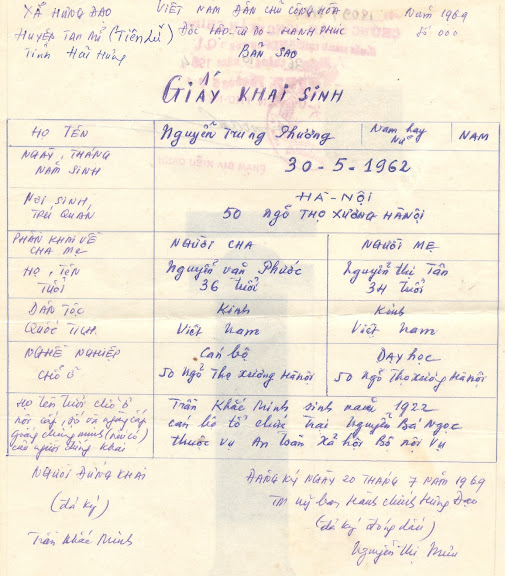 XÃ HƯNG ĐẠO VIỆT NAM DÂN CHỦ CỘNG HÒA Năm 1969
HUYỆN TAM NỮ (TIÊN LỮ) ĐỘC LẬP - TỰ DO - HẠNH PHÚC Số 000
Tỉnh Hải Hưng BẢN SAO
GIẤY KHAI SINH
HỌ TÊN Nguyễn Trung Phương Nam hay Nữ NAM
NGÀY, THÁNG NĂM SINH 30-5-1962
NƠI SINH, HÀ-NỘI
TRÚ QUÁN 50 NGÕ THỌ XƯƠNG HÀ NỘI
PHẦN KHAI VỀ CHA MẸ NGƯỜI CHA NGƯỜI MẸ
HỌ, TÊN Nguyễn văn Phước Nguyễn thị Tân
TUỔI 36 TUỔI 34 TUỔI
DÂN TỘC Kinh Kinh
QUỐC TỊCH. Việt Nam Việt Nam
NGHỀ NGHIỆP Cán bộ DẠY học
CHỖ Ở 50 NGÕ Thọ xương Hà nội 50 NGÕ Thọ xương Hà nội
Họ tên tuổi chỗ ở Trần Khắc Minh sinh năm 1922
nơi cấp, số và ngày cấp cán bộ tổ chức trại Nguyễn Bá Ngọc
giấy chứng minh (nếu có) thuộc vụ An toàn Xã hội Bộ nội vụ
của người đứng khai
NGƯỜI ĐỨNG KHAI ĐĂNG KÝ NGÀY 20 THÁNG 7 NĂM 1969
TM uỷ ban Hành chính Hưng Đạo
(đã ký) (đã ký đóng dấu)
Trần Khắc Minh Nguyễn Thị